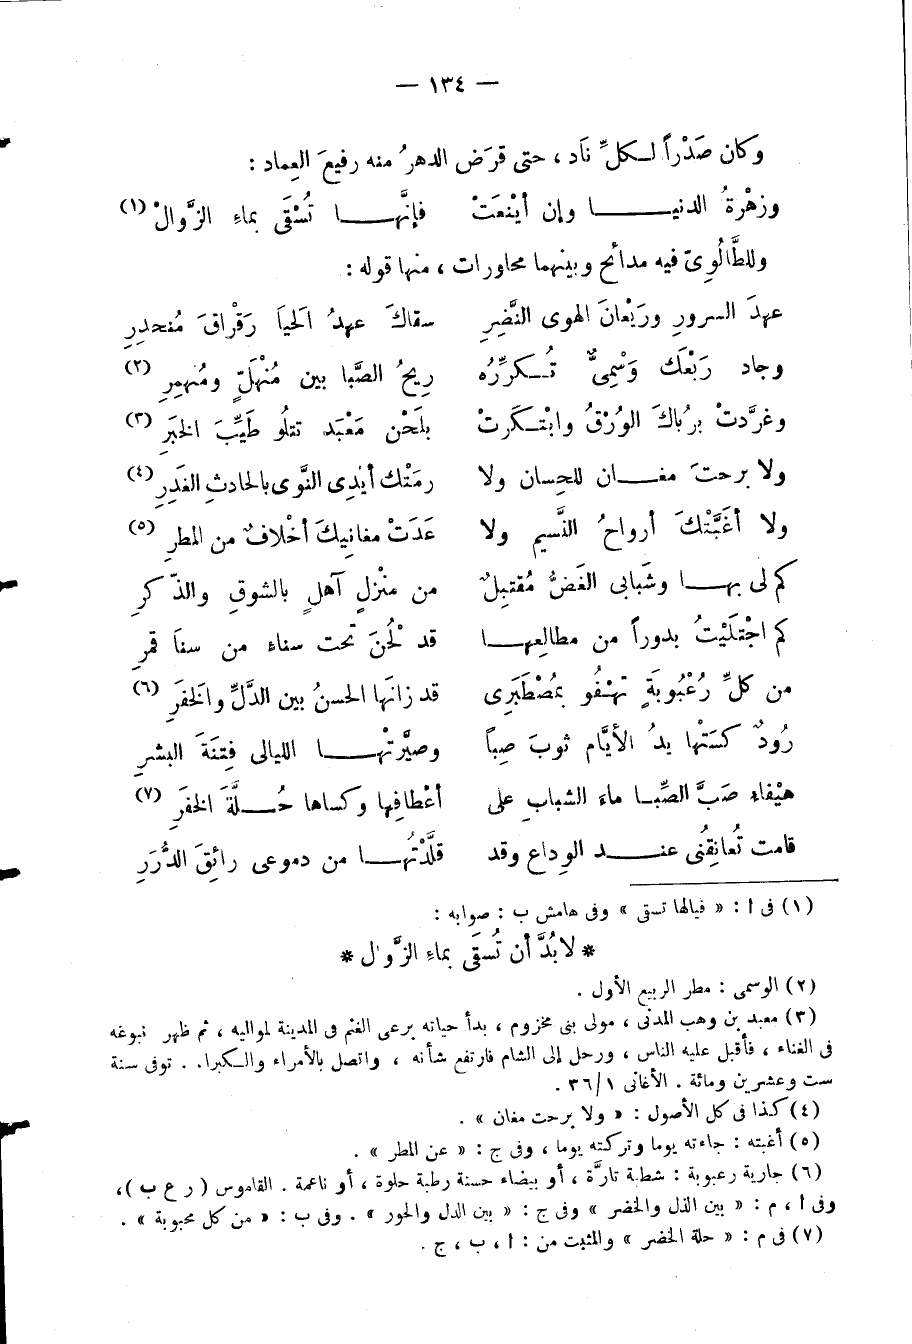 — ١٣٤ —
وكان صَدْراً لكلِّ نَاد ، حتى قرَض الدهرُ منه رفيعَ العِماد :
وزهْرةُ الدنيا وإن أيْنَعَتْ فإنَّها تُسْقَى بماءِ الزَّوالْ (١)
وللطَّالُوِىّ فيه مدائح وبينهما محاورات ، منها قوله :
عهدَ السرورِ ورَيْعانَ الهوى النَّضِرِ سقاكَ عهدُ الحياَ رَقْراقَ مُنحدِرِ
وجاد رَبْعَك وَسْمِىٌّ تُكرِّرُه رِيحُ الصَّبا بين مُنْهَلّ ومُنهمِرِ (٢)
وغرَّدتْ برُباكَ الوُرْقُ وابْتكَرتْ بلَحْن مَعْبَد تتلُو طَيِّبَ الخبَرِ (٣)
ولا برحتَ مغان للحِسان ولا رمَتْك أيْدِى النَّوى بالحادثِ الغَدِرِ (٤)
ولا أغَبَّتْكَ أرواحُ النَّسيم ولا عَدَتْ مغانِيكَ أخْلافٌ من المطرِ (٥)
كم لى بها وشَبابى الغَضُّ مُقتبِلٌ من منْزلٍ آهلٍ بالشوقِ والذِّكرِ
كم اجْتَلَيْتُ بدوراً من مطالعِها قد لُحْنَ تحت سناء من سناَ قمرِ
من كلِّ رُعْبُوبَةٍ تهْفُو بمُصْطَبَرِى قد زانَها الحسنُ بين الدَّلِّ والخفَرِ (٦)
رُودٌ كسَتْها يدُ الأيَّام ثوبَ صِباً وصيَّرتْها الليالى فِتنَةَ البشرِ
هيْفاء صَبَّ الصِّبا ماء الشبابِ على أعْطافِها وكساها حُلَّةَ الخفَرِ (٧)
قامت تُعانِقُنى عند الوِداع وقد قلَّدْتُها من دموعى رائقَ الدُّرَرِ
(١) فى ا : « فيالها تسقى » وفى هامش ب : صوابه :
* لا بُدَّ أن تُسقَى بماءِ الزَّوال *
(٢) الوسمى : مطر الربيع الأول .
(٣) معبد بن وهب المدنى ، مولى بنى مخزوم ، بدأ حياته يرعى الغنم فى المدينة لمواليه ، ثم ظهر نبوغه
فى الغناء ، فأقبل عليه الناس ، ورحل إلى الشام فارتفع شأنه ، واتصل بالأمراء والكبراء . توفى سنة
ست وعشرين ومائة . الأغانى ١/٣٦ .
(٤) كذا فى كل الأصول : « ولا برحت مغان » .
(٥) أغبته : جاءته يوما وتركته يوما ، وفى ج : « عن المطر » .
(٦) جارية رعبوبة : شطبة تارَّة ، أو بيضاء حسنة رطبة حلوة ، أو ناعمة . القاموس ( ر ع ب )،
وفى ا ، م : « بين الذل والخضر » وفى ج : « بين الدل والحور » . وفى ب : « من كل محبوبة » .
(٧) فى م : « حلة الخضر » والمثبت من : ا ، ب ، ج .